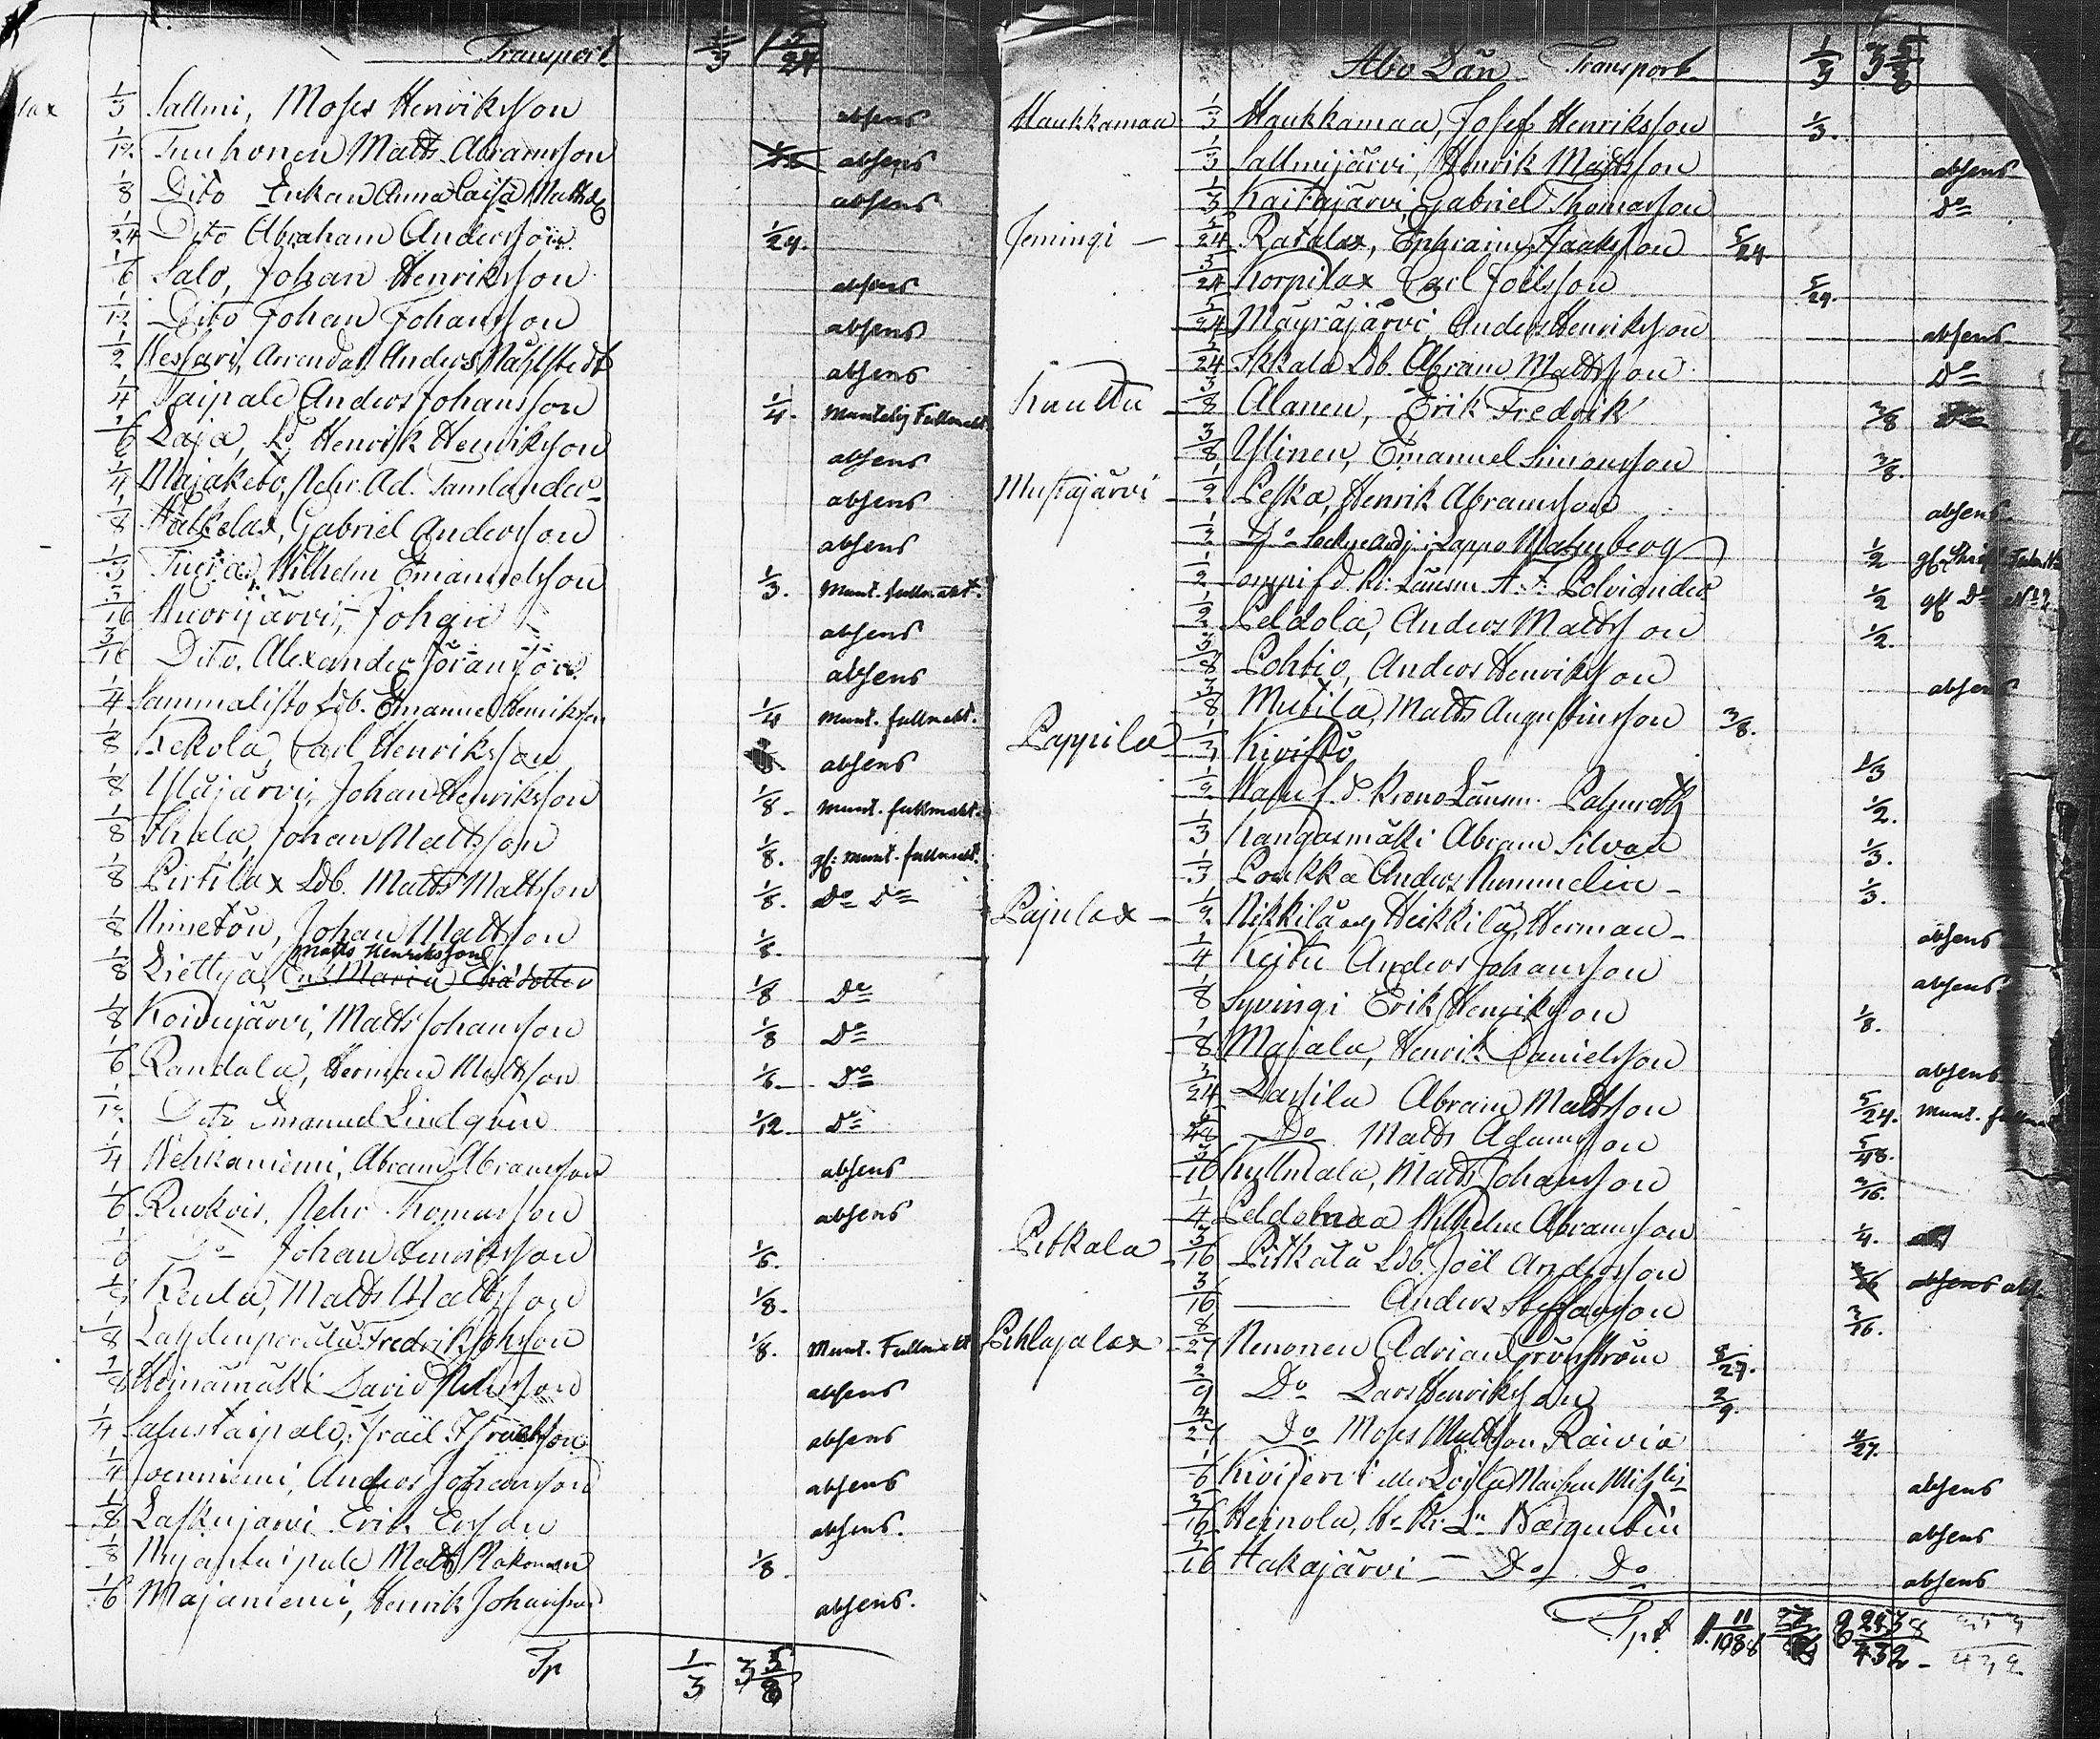 Transport 1/3 1 5/24
lax 1/3 Sallmi, Moses Henriksson absens
1/12. Tuuhonen Matts Abramsson absens
1/8 Dito Enkan Anna Caisa Mattsdr absens
1/24 Dito Abraham Andersson 1/24.
1/6 Salo, Johan Henriksson absens
1/12 Dito Johan Johansson absens
1/2 Arrendat. Anders absens
1/4 Taipale Anders Johansson 1/4. Muntelig Fullmakt
1/6 Laja, Henrik Henriksson absens
1/4 Majaketo, Ad. Tamlander absens
1/8 Gabriel Andersson absens
1/3 Wilhelm Emanuelsson 1/3. Munt. fullmakt.
3/16 Wuorijärvi, Johan absens
3/16 Dito, Alexander Göransson absens
1/4 Sammalisto Ldb. Emanuel Henriksson 1/4 Munt. fullmakt.
1/8 Kekola, Carl Henriksson absens
1/8 Yläjärvi, Johan Henriksson 1/8 - munt. fullmakt.
1/8 Johan Mattsson 1/8. gf: munt. fullmakt.
1/8 Pirtilax Ldb. Matts Mattsson 1/8. Do Do
1/8 Nimetön, Johan Mattsson 1/8.
Matts Henriksson
1/8 Liettyä, Enk. Maria 1/8 Do
1/8 Koivujärvi, Matts Johansson 1/8 Do
1/6 Randala, Herman Mattsson 1/6 - Do
1/12. Dito Emanuel Lindqvin 1/12. Do
1/4 Wehkaniemi, Abram Abramsson absens
1/6 Ruokois, Thomasson absens
1/6 Do Johan Henriksson 1/6.
1/8 Keula, Matts Mattsson 1/8.
1/8 Fredrik Johsson 1/8. Munt. Fullmakt
1/8 Heinämäki David absens
1/4 Salustaipale, Israel Israelsson absens
1/4 Anders Johansson absens
1/8 Laskujarvi Erik Ersson absens.
1/8 Matts 1/8.
1/6 Majaniemi, Henrik Johansson absens.
Tp 1/3 3 5/8
Abo Län Transport 1/3 3 5/8
Haukkamaa 1/3 Haukkamaa, Josef Henriksson 1/3.
1/3 Sallmijärvi, Henrik Mattsson absens
1/3 Kaitajärvi Gabriel Thomasson Do
Jemingi - 5/24 Ratalax, Ephraim Isaaksson 5/24
5/24 Korpilax Carl Joelsson 5/24.
5/24 Mäyräjärvi Anders Henriksson absens
5/24 Ikkala Ldb. Abram Mattsson Do
Kauttu - 3/8 Alanen, Erik Fredrik 3/8
3/8 Ylinen, Emanuel Simonsson 3/8.
Mustajärvi - 1/2 Peska, Henrik Abramsson absens.
1/2 Do i Lappo Malmberg 1/2
1/2 f.d. Kr: Länsm A. F. Polviander 1/2 gf Do No 2
1/2 Peldola, Anders Mattsson 1/2.
3/8 Pohtio, Anders Henriksson absens
3/8 Mutila, Matts Augustinsson 3/8.
Pappila - 1/3 Kivistö 1/3
1/2 f.d. Krono Länsm. Palmroth 1/2.
1/3 Kangasmäki Abram Silvan 1/3.
1/3 Poukka Anders Nummelin - 1/3.
Pajulax - 1/2 Nikkilä och Heikkilä, Herman - absens
1/4 Keitu Anders Johansson absens.
1/8 Syvingi Erik Henriksson 1/8.
1/8 Majala, Henrik Danielsson absens
5/24 Lassila Abram Mattsson 5/24. Munt. fullm
5/48 Do Matts Adamsson 5/48.
3/16 Kyllndala, Matts Johansson 3/16.
1/4 Peldomaa Wilhelm Abramsson 1/4.
Pitkala - 3/16 Pitkälä Ldb. Joël Andersson absens abs
3/16 —— Anders Steffansson 3/16.
Pihlajalax - 8/27 Nenonen Adrian Grönström 8/27.
2/9 Do Lars Henriksson 2/9.
4/27 Do Moses Mattsson Raivia 4/27.
1/6 Kivijervi eller absens
3/16 Heinola, absens
3/16 Hakajärvi - Do Do absens
Tpt.